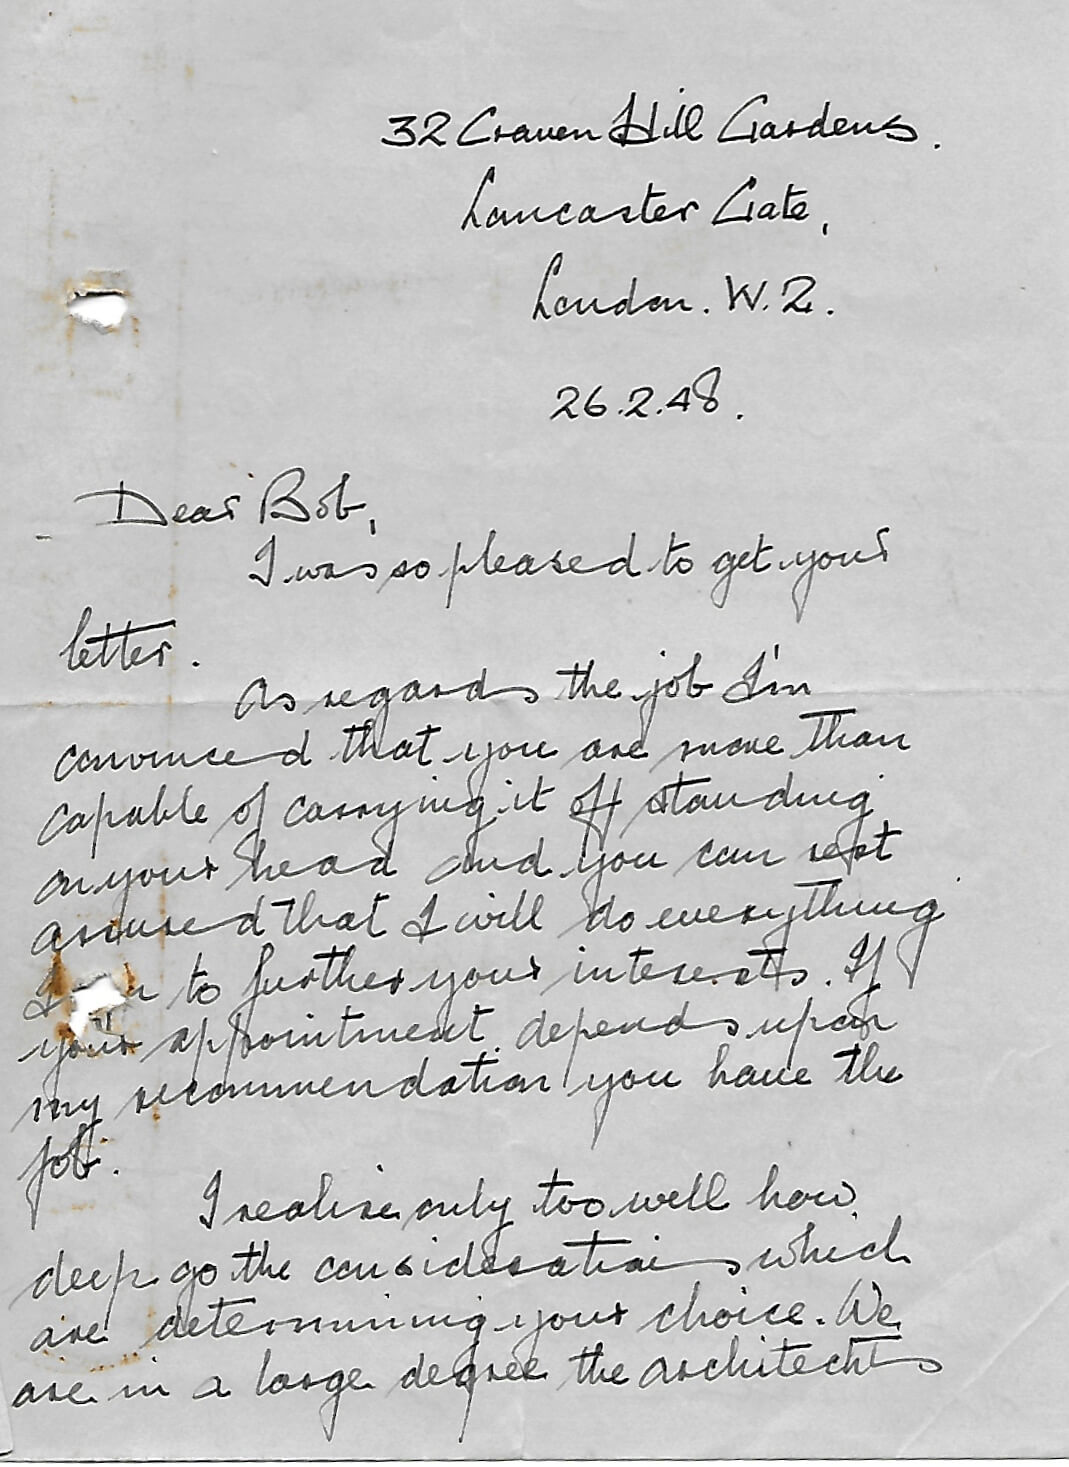 32 Craven Hill Gardens.
Lancaster Gate,
London. W.2.
26.2.48.
Dear Bob,
I was so pleased to get your
letter.
As regards the job I'm
convinced that you are more than
capable of carrying it off standing
on your head and you can rest
assured that I will do everything
I to further your interests. If
your appointment depends upon
my recommendation you have the
job.
I realise only too well how
deep go the considerations which
are determining your choice. We
are in a large degree the architects